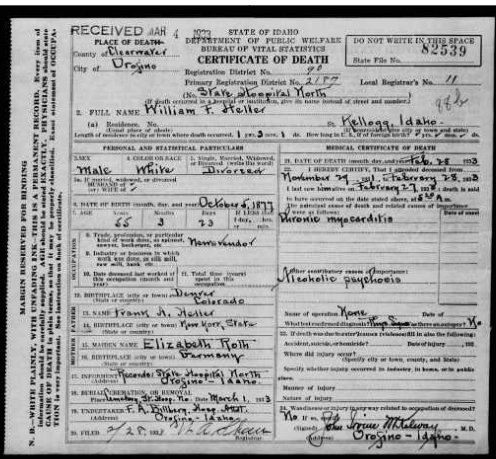 RECEIVED MAR 4 1933
STATE OF IDAHO
DEPARTMENT OF PUBLIC WELFARE
BUREAU OF VITAL STATISTICS
CERTIFICATE OF DEATH
DO NOT WRITE IN THIS SPACE
82539
State File No.
PLACE OF DEATH
County of Clearwater
City of Orofino
Registration District No. 90
Primary Registration District No. 2187
Local Registrar's No. 11
(No. State Hospital North
(If death occurred in a hospital or institution, give its name instead of street and number.)
98b
2. FULL NAME William F. Heller
(a) Residence. No. St. Kellogg, Idaho.
(Usual place of abode)
Length of residence in city or town where death occurred. 1 yrs. 3 mos. 1 ds. How long in U. S., if of foreign birth? yrs. mos. ds.
PERSONAL AND STATISTICAL PARTICULARS
3. SEX 4. COLOR OR RACE 5. Single, Married, Widowed,
Male White Divorced
5a. If married, widowed, or divorced
HUSBAND of
(or) WIFE of
6. DATE OF BIRTH (month, day, and year) October 5, 1877
7. AGE Years Months Days If LESS than
55 3 23
OCCUPATION
8. Trade, profession, or particular
kind of work done, as spinner,
sawyer, bookkeeper, etc.
9. Industry or business in which
work was done, as silk mill,
saw mill, bank, etc.
10. Date deceased last worked at
this occupation (month and
year)
11. Total time (years)
spent in this
occupation
12. BIRTHPLACE (city or town) Denver
(State or country) Colorado
13. NAME Frank A. Heller
14. BIRTHPLACE (city or town) New York, State
(State or country)
MOTHER
15. MAIDEN NAME Elizabeth Roth
16. BIRTHPLACE (city or town) Germany
(State or country)
17. INFORMANT Records: State Hospital North
(Address) Orofino - Idaho.
18. BURIAL, CREMATION, OR REMOVAL
Place Cemetery St. Hosp. No. Date March 1, 1933
19. UNDERTAKER F. A. Billberg, Hosp.
(Address) Orofino - Idaho
20. FILED 2/28, 193
Registrar
MEDICAL CERTIFICATE OF DEATH
21. DATE OF DEATH (month, day, and year) Feb. 28 1933
22. I HEREBY CERTIFY, That I attended deceased from
November 27, 1931, February 28, 1933
I last saw him alive on February 27, 193 ; death is said
to have occurred on the date stated above, at
The principal cause of death and related causes of importance
were as follows:
Chronic myocarditis
Other contributory causes of importance:
Alcoholic psychosis
Name of operation None
What test confirmed diagnosis? Was there an autopsy? No
23. If death was due to external causes (violence) fill in also the following:
Accident, suicide, or homicide? Date of injury , 193
Where did injury occur?
(Specify city or town, county, and State)
Specify whether injury occurred in industry, in home, or in public
place.
Manner of injury
Nature of injury
24. Was disease or injury in any way related to occupation of deceased?
No If so, specify
(Signed) John Irvine M. D.
(Address) Orofino - Idaho.
MARGIN RESERVED FOR BINDING
N. B.—WRITE PLAINLY, WITH UNFADING INK—THIS IS A PERMANENT RECORD. Every item of
information should be carefully supplied. AGE should be stated EXACTLY. PHYSICIANS should state
CAUSE OF DEATH in plain terms, so that it may be properly classified. Exact statement of OCCUPA-
TION is very important. See instructions on back of certificate.